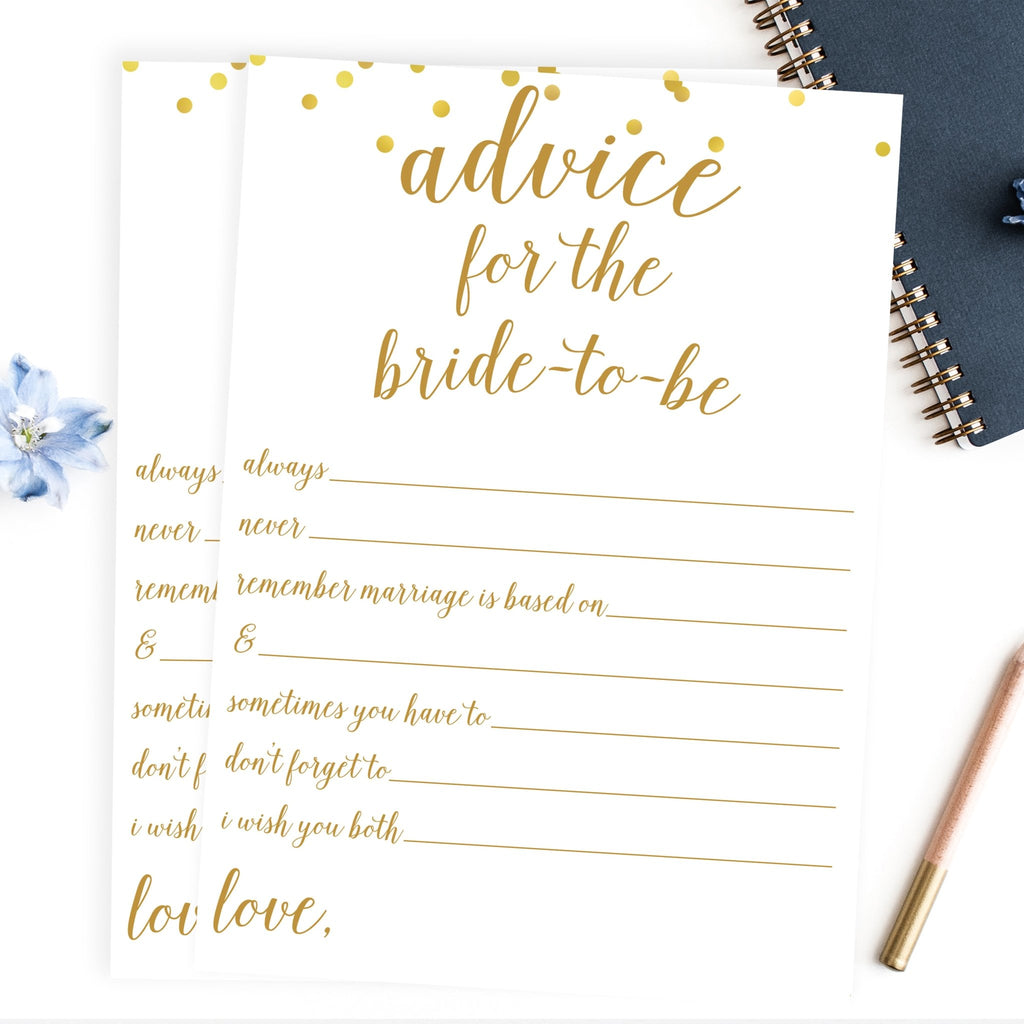 advice
for the
bride-to-be
always
never
remember marriage is based on
&
sometimes you have to
don't forget to
i wish you both
love,
always
never
rememb
&
someti
don't f
i wish
lov